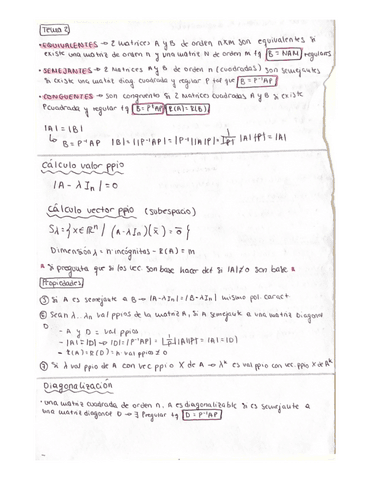 Tema 2
• EQUIVALENTES → 2 matrices A y B de orden nxm son equivalentes si
existe una matriz de orden n y una matriz N de orden m tq B = NAM regulares
• SEMEJANTES → 2 Matrices A y B de orden n (cuadradas) son semejantes
si existe una matriz diag. cuadrada y regular P tal que B = P⁻¹AP
• CONGUENTES → son congruento si 2 Matrices cuadradas A y B si existe
P cuadrada y regular tq B = PᵗAP R(A) = R(B).
|A| = |B|
↳ B = P⁻¹AP |B| = |P⁻¹AP| = |P⁻¹||A||P| = 1/|P| |A||P| = |A|
Cálculo valor ppio
|A - λIn| = 0
Cálculo vector ppio (subespacio)
Sλ = {x ∈ ℝⁿ / (A - λIn)(x̄) = ō}
Dimensión λ = n incógnitas - R(A) = m
* Si pregunta que si los vec. son base hacer det si |A| ≠ 0 son base *
Propiedades
① Si A es semejante a B → |A - λIn| = |B - λIn| mismo pol. caract.
② Sean λ₁...λn valores ppios de la matriz A, Si A semejante a una matriz diagonal
D
- A y D = val ppios
- |A| = |D| → |D| = |P⁻¹AP| = 1/|P| |A||P| = |A| = |D|
- R(A) = R(D) = A val ppios ≠ 0
③ Si λ val ppio de A con vec ppio X de A → λᵏ es val ppio con vec. ppio X de Aᵏ
Diagonalización
• una matriz cuadrada de orden n. A es diagonalizable si es semejante a
una matriz diagonal D → ∃ P regular tq D = P⁻¹AP